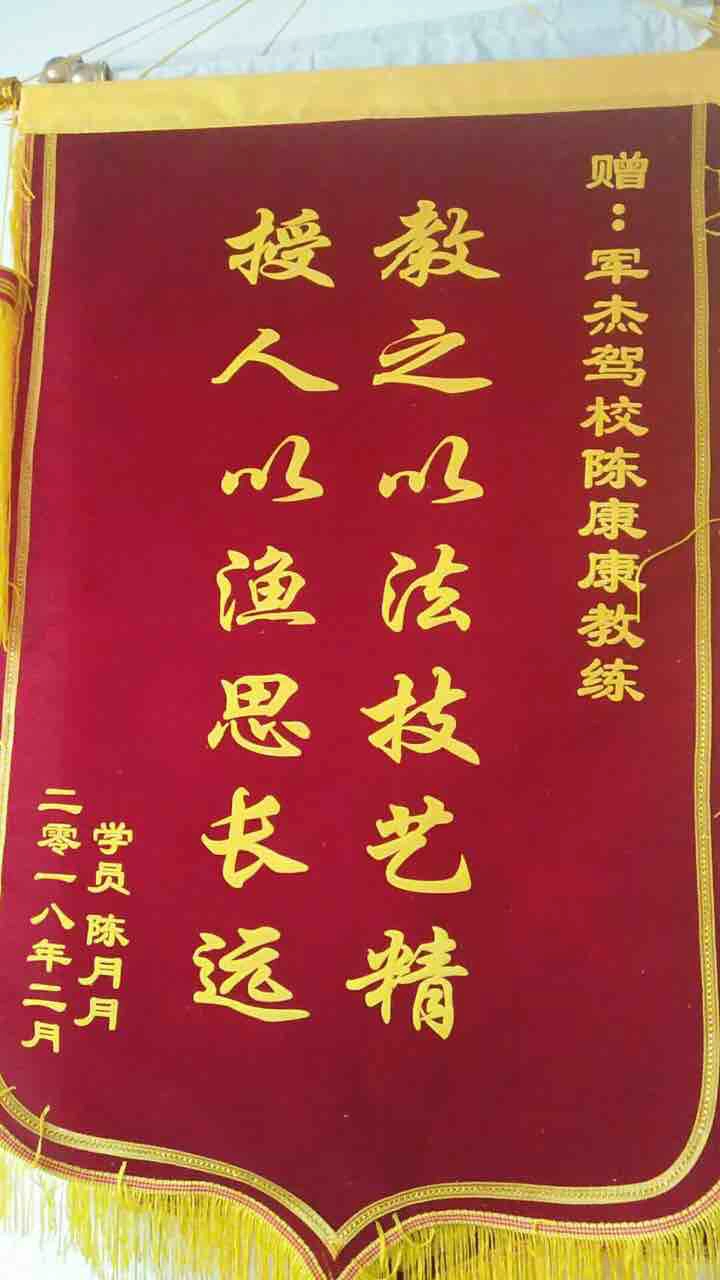 赠：军杰驾校陈康康教练
教之以法技艺精
授人以渔思长远
学员 陈月月
二零一八年二月